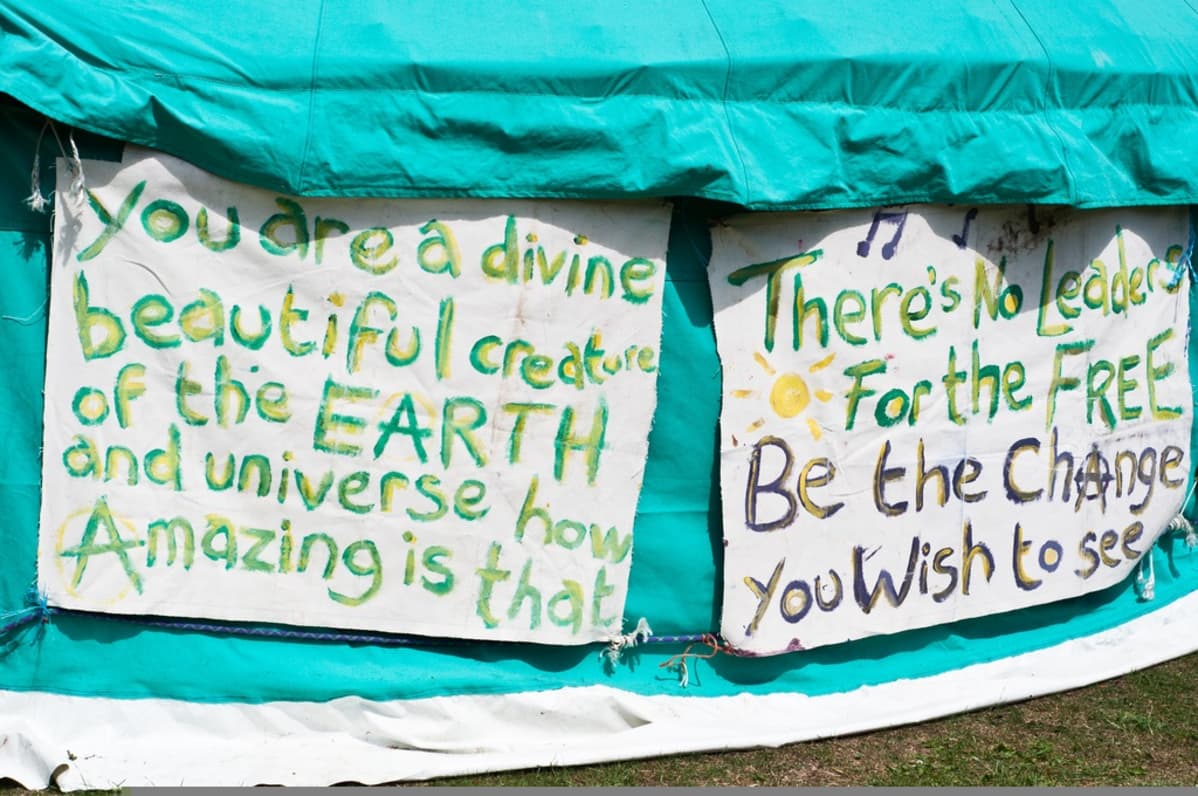 You are a divine
beautiful creature
of the EARTH
and universe how
Amazing is that
There's No Leaders
For the FREE
Be the ChAnge
you Wish to see